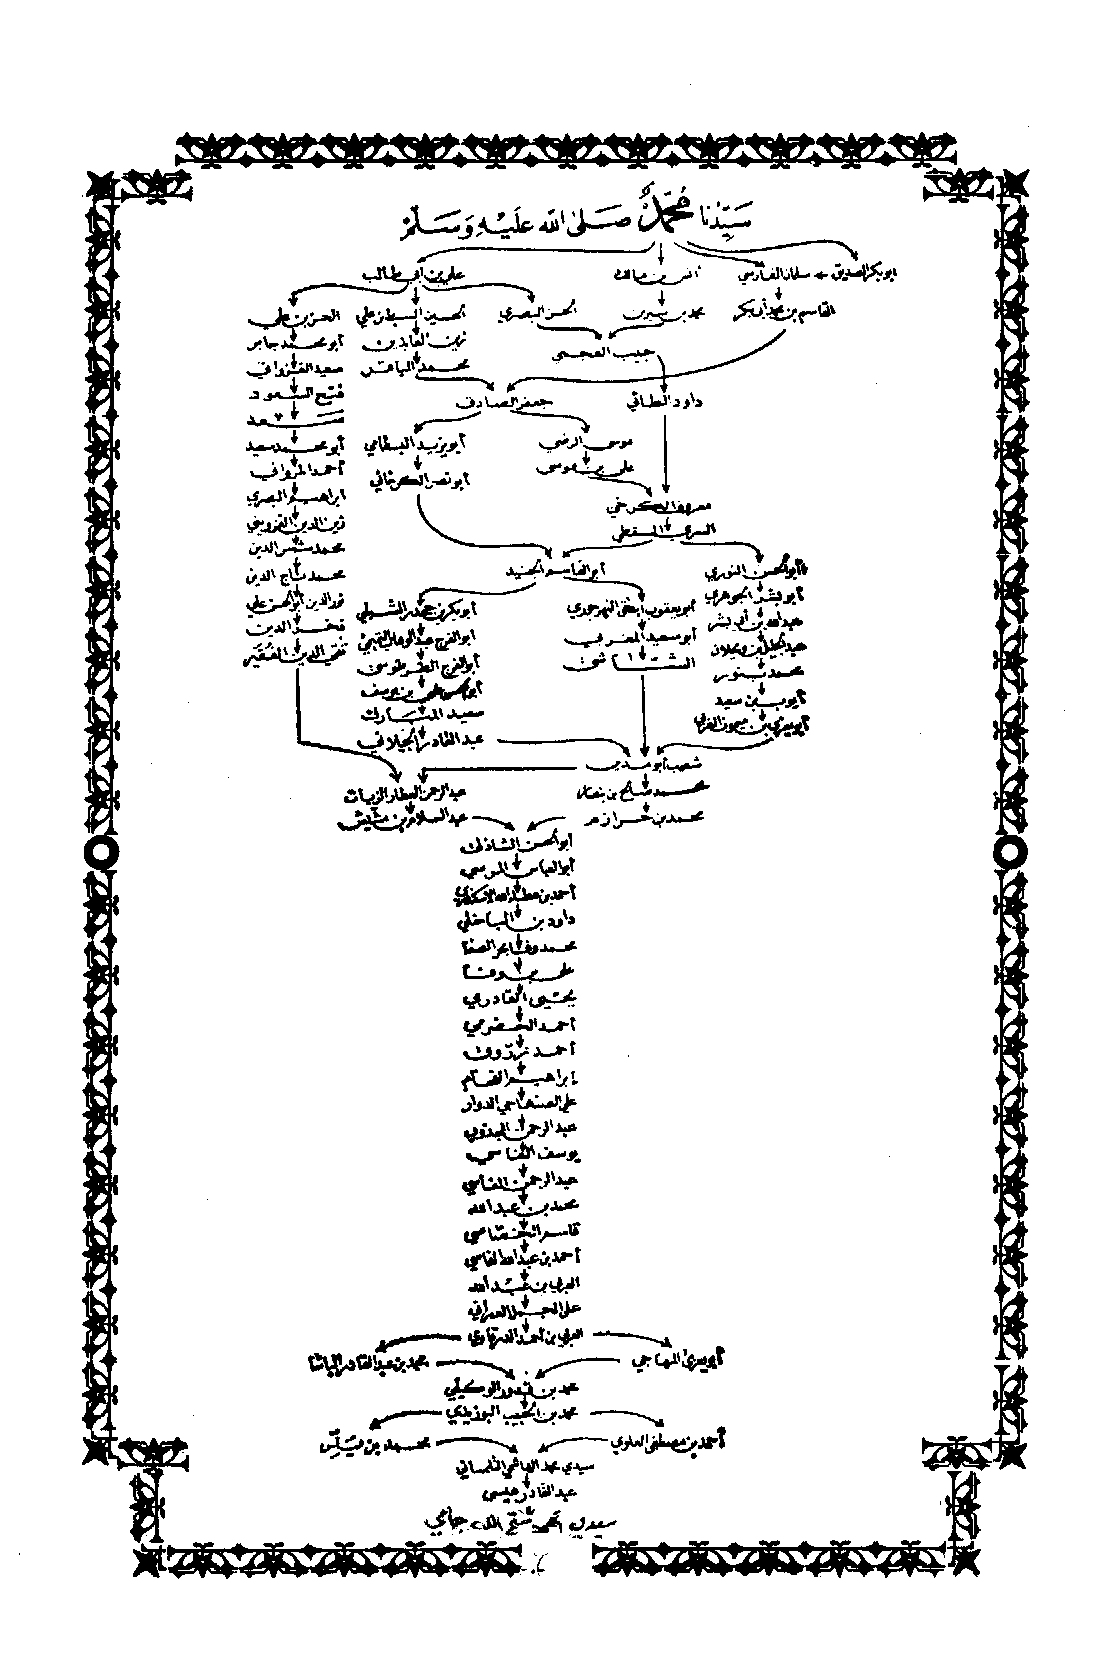 سيدنا محمد صلى الله عليه وسلم
أبوبكر الصديق سلمان الفارسي أنس بن مالك علي بن أبي طالب
القاسم بن محمد أبي بكر محمد بن سيرين الحسن البصري الحسين السبط بن علي الحسن بن علي
زين العابدين أبو محمد جابر
حبيب العجمي محمد الباقر سعيد الغزواني
داود الطائي جعفر الصادق فتح السعود
سعد
موسى الرضى أبو يزيد البسطامي أبو محمد سعيد
علي بن موسى أبو نصر الكرخاني أحمد المرواني
ابراهيم البصري
معروف الكرخي
زين الدين القزويني
السري السقطي
محمد شمس الدين
أبو الحسن النوري أبو القاسم الجنيد محمد تاج الدين
أبو بشر الجوهري أبو يعقوب النهرجوري أبو بكر بن جحدر الشبلي نور الدين أبو الحسن علي
عبد الله بن أبي بشر أبو سعيد المغربي أبو الفرج عبد الوهاب التميمي فخر الدين
عبد الجليل بن ويحلان الشاشي أبو الفرج الطرطوسي تقي الدين الفقير
محمد تنور أبو الحسن علي بن يوسف
أيوب بن سعيد سعيد المبارك
أبو يعزى بن ميمون الغربي عبد القادر الجيلاني
شعيب أبو مدين
محمد صالح بن بنصار عبد الرحمن العطار الزيات
محمد بن حرازم عبد السلام بن مشيش
أبو الحسن الشاذلي
أبو العباس المرسي
أحمد بن عطاء الله الاسكندري
داود بن الباخلي
محمد وفا بحر الصفا
علي بن وفا
يحيى القادري
أحمد الحضرمي
أحمد زروق
إبراهيم الفحام
علي الصنهاجي الدوار
عبد الرحمن المجذوب
يوسف الفاسي
عبد الرحمن الفاسي
محمد بن عبد الله
قاسم الخصاصي
أحمد بن عبد الله الفاسي
العربي بن عبد الله
علي الجمل العمراني
العربي بن أحمد الدرقاوي
أبو يعزى المهاجي محمد بن عبد القادر الباشا
محمد بن قدور الوكيلي
محمد بن الحبيب البوزيدي
أحمد بن مصطفى العلوي محمد بن يلس
سيدي محمد الهاشمي التلمساني
عبد القادر عيسى